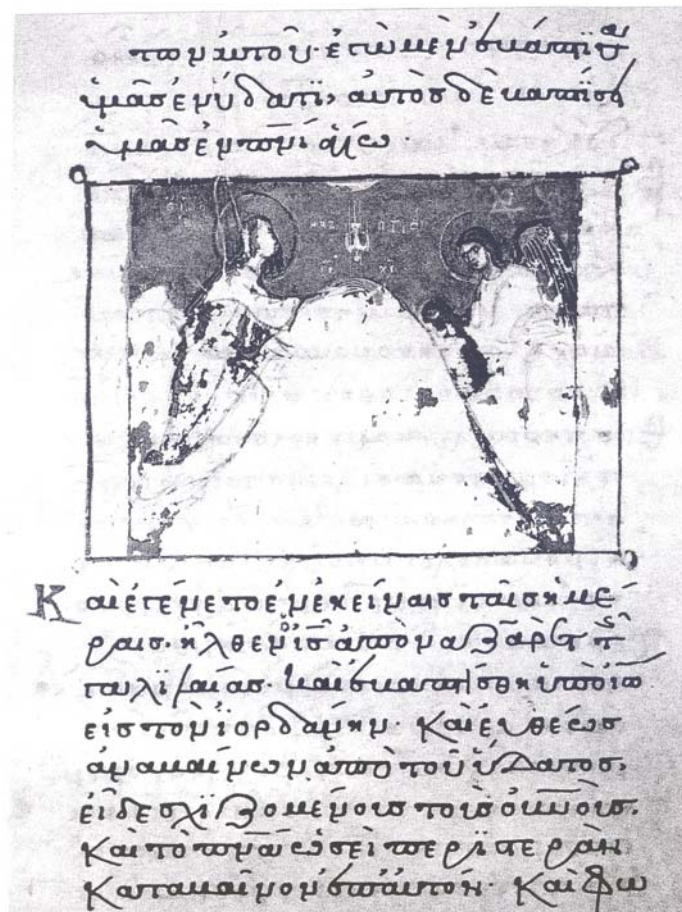 των αὐτοῦ· ἐγὼ μὲν ἐβάπτισα
ὑμᾶς ἐν ὕδατι, αὐτὸς δὲ βαπτίσει
ὑμᾶς ἐν π̅ν̅ι̅ ἁγίω·
Καὶ ἐγένετο ἐν ἐκείναις ταῖς ἡμέ
ραις· ἦλθεν ὁ ι̅ς̅ ἀπὸ ναζαρὲτ τῆς
γαλιλαίας· καὶ ἐβαπτίσθη ὑπὸ ἰω
εἰς τὸν ϊορδάνην· Καὶ εὐθέως
ἀναβαίνων ἀπὸ τοῦ ὕδατος,
εἶδε σχϊζομένους τοὺς οὐ̅ν̅οὺς·
Καὶ τὸ π̅ν̅α̅ ὡσεὶ περϊστερὰν
Καταβαῖνον ἐπ αὐτόν· Καὶ φω